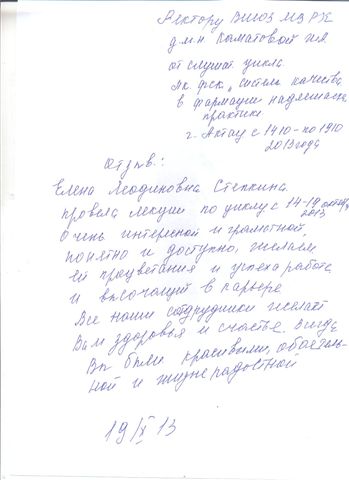 Ректору ВШОЗ МЗ РК
д.м.н.
от слушат. цикла
"Систем качества
в фармации надлежащ.
практики
г. Актау с 1410 - по 1910
2013 года
Отзыв.:
Елена Леодиновна Степкина
провела лекции по циклу с 14-19 октябр
2013
Очень интересной и грамотной,
понятно и доступно, желаем
ей процветания и успеха работе
и высочащий в карьере
Все наши сотрудники желает
Вам здоровья и счастье всегда
Вы были красивыми, обаятель-
ной и жизнерадостной
19/X 13